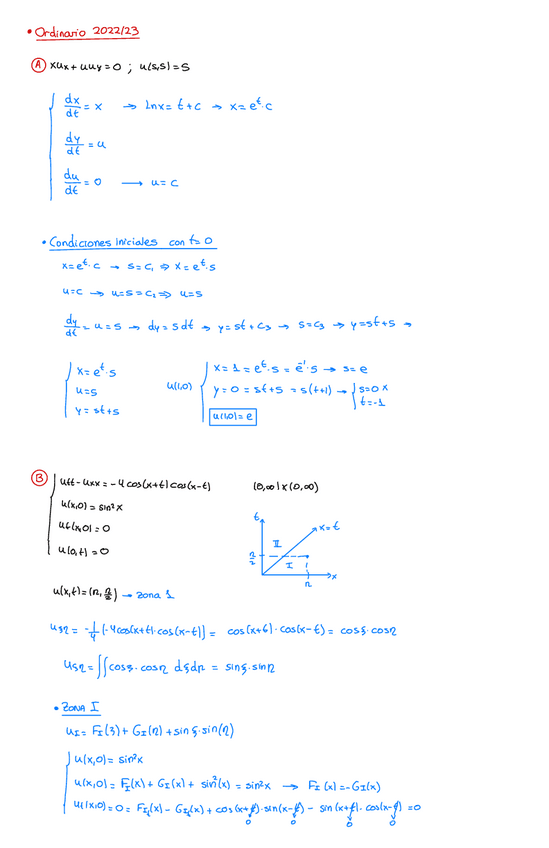 • Ordinario 2022/23
A xux + uuy = 0 ; u(s,s) = s
dx/dt = x → lnx = t + c → x = e^t · c
dy/dt = u
du/dt = 0 → u = c
• Condiciones iniciales con t = 0
x = e^t · c → s = c₁ ⇒ x = e^t · s
u = c → u = s = c₂ ⇒ u = s
dy/dt = u = s → dy = s dt → y = st + c₃ → s = c₃ → y = st + s →
x = e^t · s
u = s
y = st + s
u(1,0)
x = 1 = e^t · s = e^-1 · s → s = e
y = 0 = st + s = s(t+1) → s = 0 x
t = -1
u(1,0) = e
B utt - uxx = -4 cos(x+t) cos(x-t) (0,∞) x (0,∞)
u(x,0) = sin²x
ut(x,0) = 0
u(0,t) = 0
t
x = t
II
π/2
I
π
x
u(x,t) = (π, π/2) → zona 1
uξη = -1/4 (-4cos(x+t) · cos(x-t)) = cos(x+t) · cos(x-t) = cosξ · cosη
uξη = ∫∫ cosξ · cosη dξdη = sinξ · sinη
• ZONA I
uI = FI(ξ) + GI(η) + sinξ · sin(η)
u(x,0) = sin²x
u(x,0) = FI(x) + GI(x) + sin²(x) = sin²x → FI(x) = -GI(x)
ut(x,0) = 0 = FI(x) - GI(x) + cos(x+t) · sin(x-t) - sin(x+t) · cos(x-t) = 0
0 0 0 0